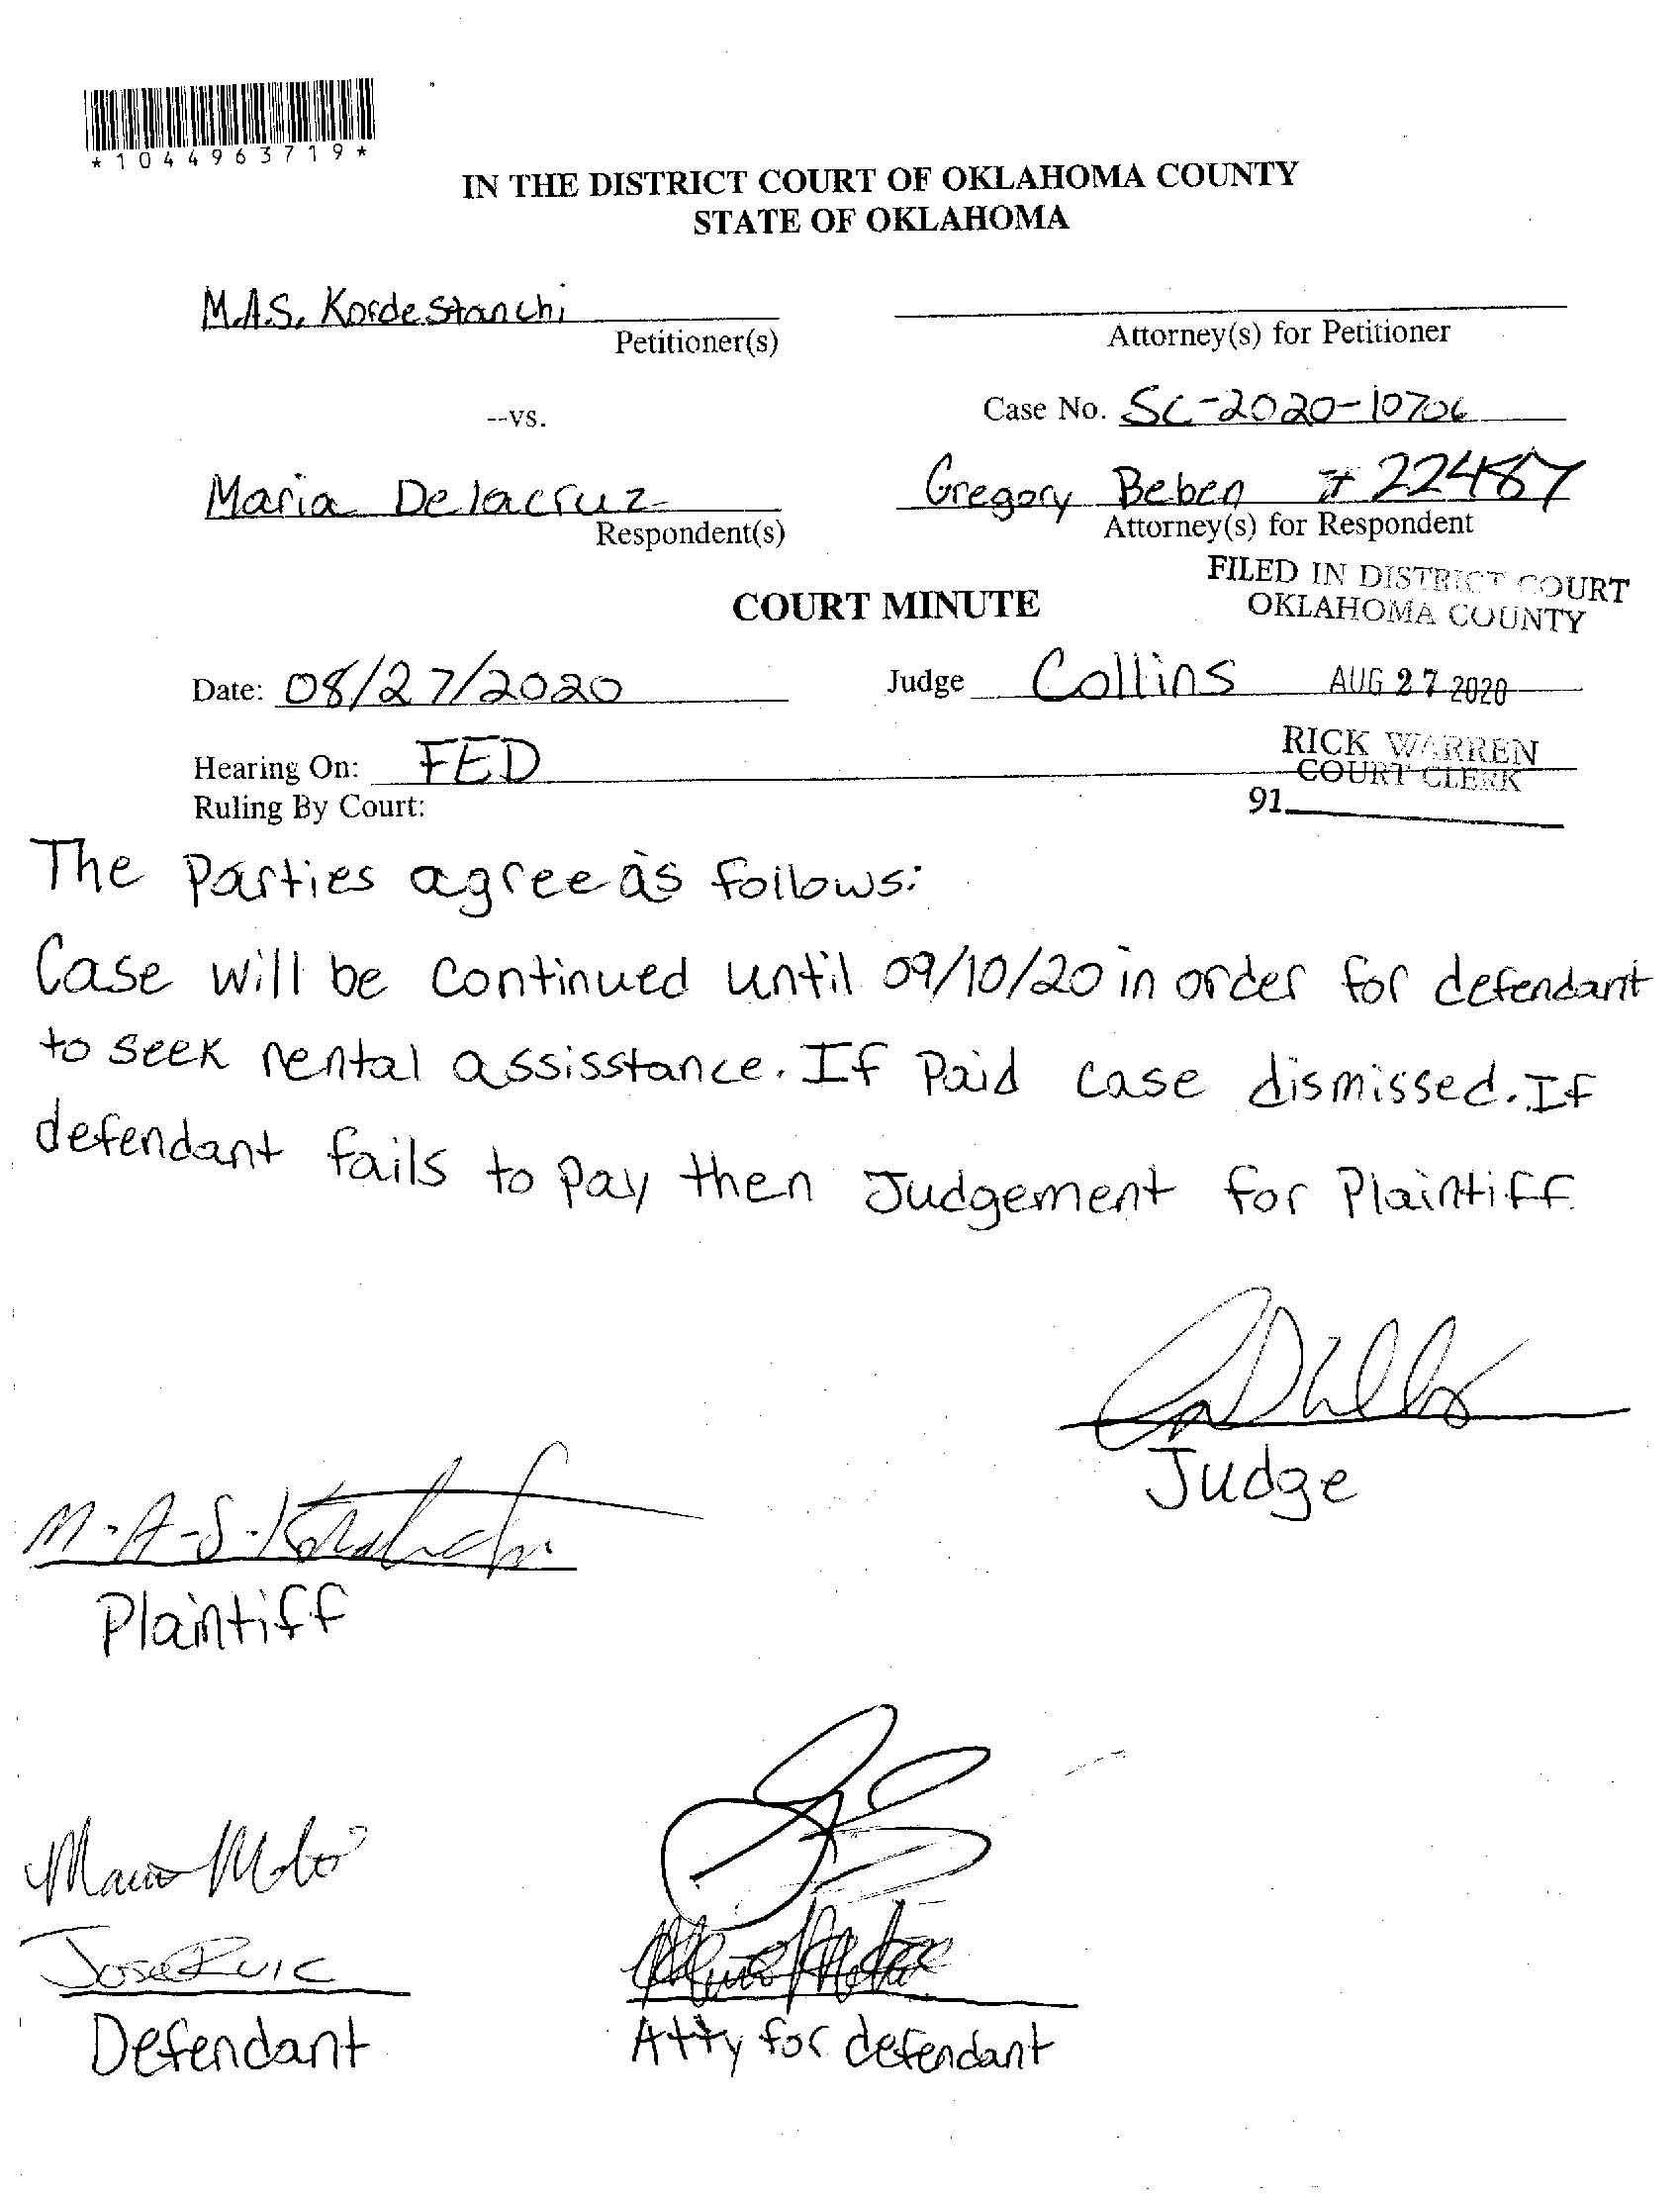 *1044963719*
IN THE DISTRICT COURT OF OKLAHOMA COUNTY
STATE OF OKLAHOMA
M.A.S. Kordestanchi
Petitioner(s)
Attorney(s) for Petitioner
--vs.
Case No. SC-2020-10706
Maria Delacruz
Respondent(s)
Gregory Beben # 22487
Attorney(s) for Respondent
FILED IN DISTRICT COURT
OKLAHOMA COUNTY
COURT MINUTE
Date: 08/27/2020
Judge Collins
AUG 27 2020
Hearing On: FED
RICK WARREN
COURT CLERK
Ruling By Court:
91
The Parties agree as follows:
Case will be continued until 09/10/20 in order for defendant
to seek rental assisstance. If Paid case dismissed. If
defendant fails to pay then Judgement for Plaintiff.
Judge
M-A-S-
Plaintiff
Jose Ruic
Defendant
Atty for defendant